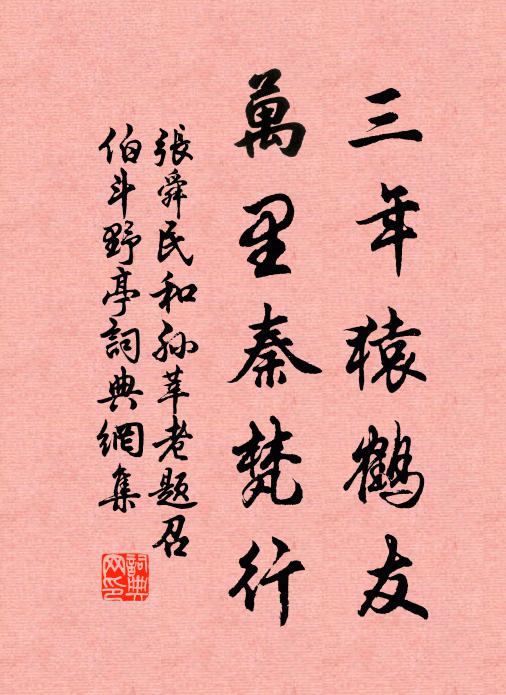 三年猿鶴友
萬里秦梵行
張舜民和孫莘老題召
伯斗野亭詞典網集
詞典
网印